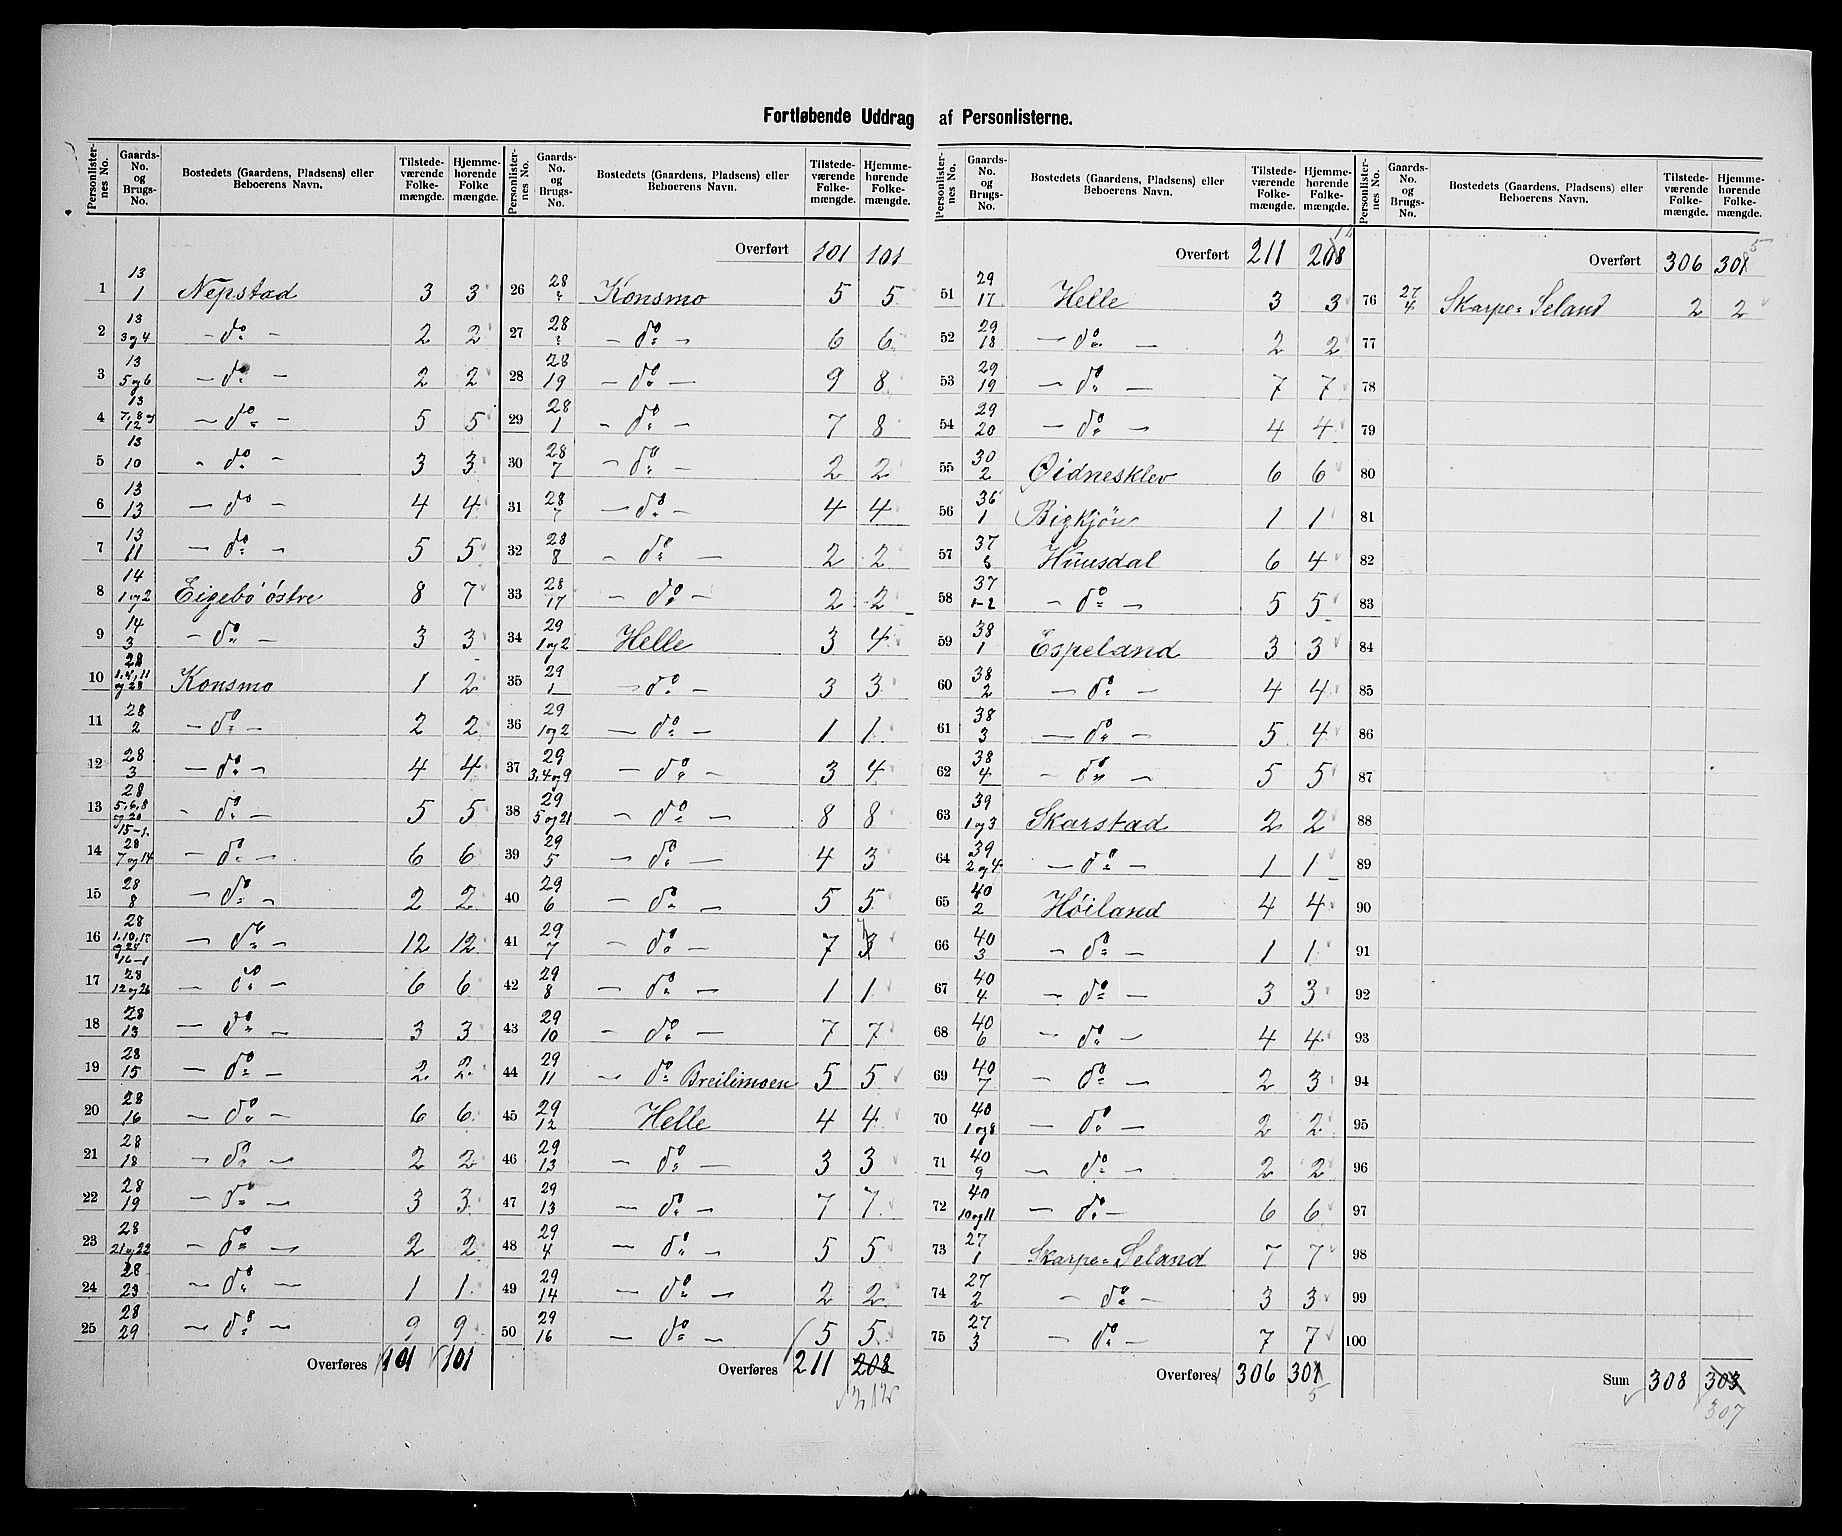 Fortløbende Uddrag af Personlisterne.
Personlister-nes No. | Gaards-No. og Brugs-No. | Bostedets (Gaardens, Pladsens) eller Beboerens Navn. | Tilstede-værende Folke-mængde. | Hjemme-hørende Folke mængde.
1 | 13 1 | Nepstad | 3 | 3
2 | 13 3 og 4 | - do - | 2 | 2
3 | 13 5 og 6 | - do - | 2 | 2
4 | 13 7, 8 og 12 | - do - | 5 | 5
5 | 13 10 | - do - | 3 | 3
6 | 13 13 | - do - | 4 | 4
7 | 13 11 | - do - | 5 | 5
8 | 14 1 og 2 | Eigebø østre | 8 | 7
9 | 14 3 | - do - | 3 | 3
10 | 28 1, 4, 11 og 28 | Konsmo | 1 | 2
11 | 28 2 | - do - | 2 | 2
12 | 28 3 | - do - | 4 | 4
13 | 28 5, 6, 8 og 20 15-1. | - do - | 5 | 5
14 | 28 7 og 14 | - do - | 6 | 6
15 | 28 8 | - do - | 2 | 2
16 | 28 1, 10, og 16-1 | - do - | 12 | 12
17 | 28 12 og 26 | - do - | 6 | 6
18 | 28 13 | - do - | 3 | 3
19 | 28 15 | - do - | 2 | 2
20 | 28 16 | - do - | 6 | 6
21 | 28 18 | - do - | 2 | 2
22 | 28 19 | - do - | 3 | 3
23 | 28 21 og 22 | - do - | 2 | 2
24 | 28 23 | - do - | 1 | 1
25 | 28 29 | - do - | 9 | 9
Overføres 101 101
Personlister-nes No. | Gaards-No. og Brugs-No. | Bostedets (Gaardens, Pladsens) eller Beboerens Navn. | Tilstede-værende Folke-mængde. | Hjemme-hørende Folke-mængde.
Overført 101 101
26 | 28 ? | Konsmo | 5 | 5
27 | 28 ? | - do - | 6 | 6
28 | 28 19 | - do - | 9 | 8
29 | 28 1 | - do - | 7 | 8
30 | 28 7 | - do - | 2 | 2
31 | 28 7 | - do - | 4 | 4
32 | 28 8 | - do - | 2 | 2
33 | 28 17 | - do - | 2 | 2
34 | 29 1 og 2 | Helle | 3 | 4
35 | 29 1 | - do - | 3 | 3
36 | 29 1 og 2 | - do - | 1 | 1
37 | 29 3, 4 og 9 | - do - | 3 | 4
38 | 29 5 og 21 | - do - | 8 | 8
39 | 29 5 | - do - | 4 | 3
40 | 29 6 | - do - | 5 | 5
41 | 29 7 | - do - | 7 | 3 7
42 | 29 8 | - do - | 1 | 1
43 | 29 10 | - do - | 7 | 7
44 | 29 11 | - do Breilimoen | 5 | 5
45 | 29 12 | Helle | 4 | 4
46 | 29 13 | - do - | 3 | 3
47 | 29 13 | - do - | 7 | 7
48 | 29 4 | - do - | 5 | 5
49 | 29 14 | - do - | 2 | 2
50 | 29 16 | - do - | 5 | 5
Overføres 211 208
212
Personlister-nes No. | Gaards-No. og Brugs-No. | Bostedets (Gaardens, Pladsens) eller Beboerens Navn. | Tilstede-værende Folke-mængde. | Hjemme-hørende Folke-mængde.
12
Overført 211 208
51 | 29 17 | Helle | 3 | 3
52 | 29 18 | - do - | 2 | 2
53 | 29 19 | - do - | 7 | 7
54 | 29 20 | - do - | 4 | 4
55 | 30 2 | Øidnesklev | 6 | 6
56 | 36 1 | Bigkjøn | 1 | 1
57 | 37 | Huusdal | 6 | 4
58 | 37 1-2 | - do - | 5 | 5
59 | 38 1 | Espeland | 3 | 3
60 | 38 2 | - do - | 4 | 4
61 | 38 3 | - do - | 5 | 4
62 | 38 4 | - do - | 5 | 5
63 | 39 1 og 3 | Skarstad | 2 | 2
64 | 39 2 og 4 | - do - | 1 | 1
65 | 40 2 | Høiland | 4 | 4
66 | 40 3 | - do - | 1 | 1
67 | 40 4 | - do - | 3 | 3
68 | 40 6 | - do - | 4 | 4
69 | 40 7 | - do - | 2 | 3
70 | 40 1 og 8 | - do - | 2 | 2
71 | 40 9 | - do - | 2 | 2
72 | 40 10 og 11 | - do - | 6 | 6
73 | 27 1 | Skarpe=Seland | 7 | 7
74 | 27 2 | - do - | 3 | 3
75 | 27 3 | - do - | 7 | 7
Overføres 306 301
5
Personlister-nes No. | Gaards-No. og Brugs-No. | Bostedets (Gaardens, Pladsens) eller Beboerens Navn. | Tilstede-værende Folke-mængde. | Hjemme-hørende Folke-mængde.
5
Overført 306 301
76 | 27 4 | Skarpe=Seland | 2 | 2
77
78
79
80
81
82
83
84
85
86
87
88
89
90
91
92
93
94
95
96
97
98
99
100
Sum 308 303
307